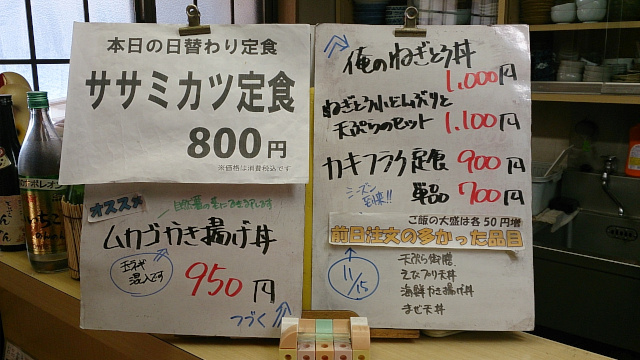 本日の日替わり定食
ササミカツ定食
800円
※価格は消費税込です
オススメ
ムカゴかき揚げ丼
混入です
950円
つづく
俺のねぎとろ丼
1,000円
ねぎとろ小どんぶりと
天ぷらのセット 1,100円
カキフライ定食 900円
シーズン
到来!! 単品 700円
ご飯の大盛は各50円増
前日注文の多かった品目
11/15
天ぷら御膳
えびブリ天丼
海鮮かき揚げ丼
まぜ天丼